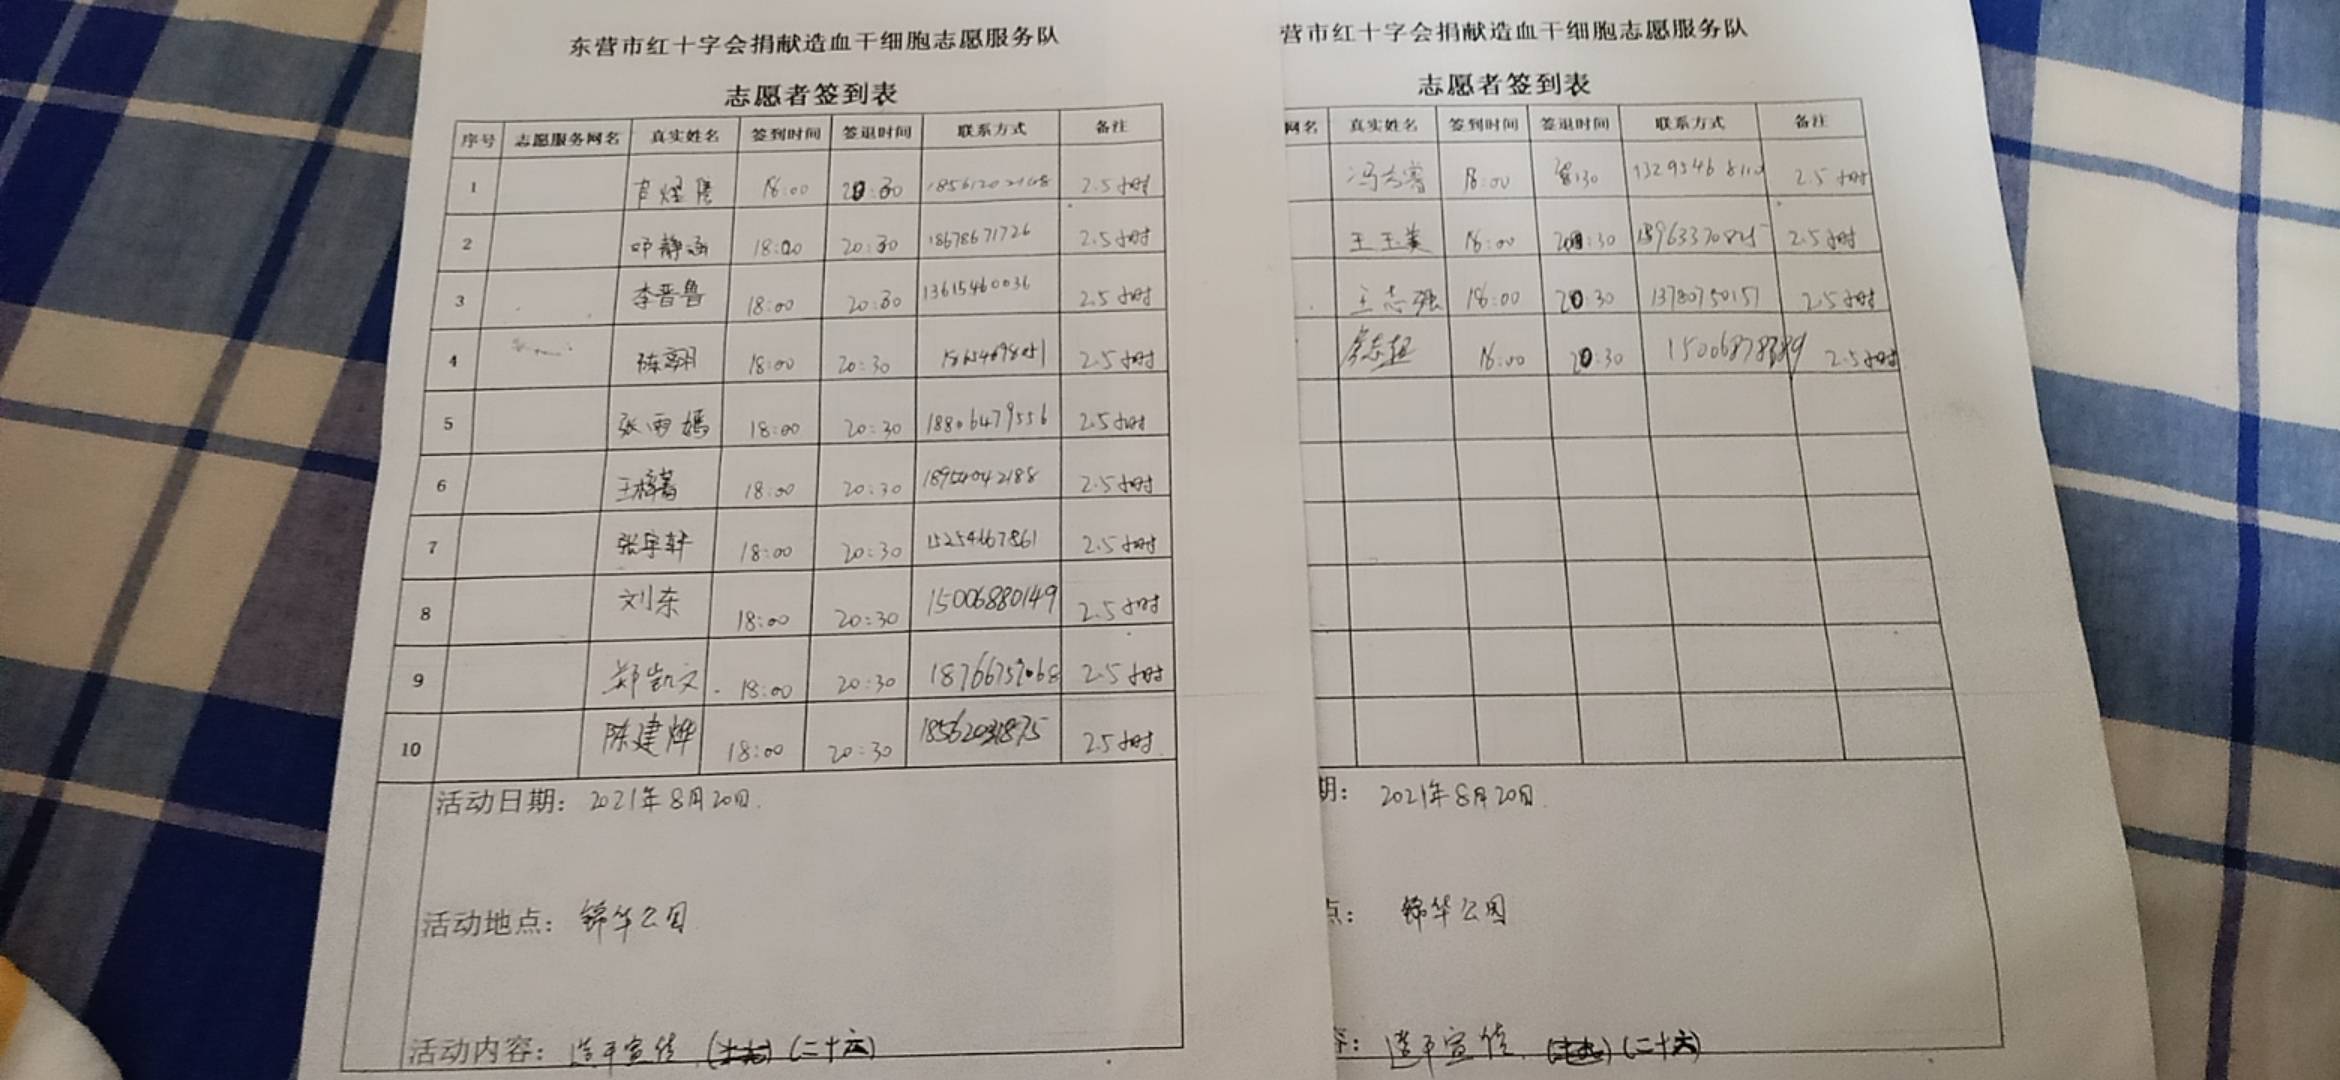 东营市红十字会捐献造血干细胞志愿服务队
志愿者签到表
序号 志愿服务网名 真实姓名 签到时间 签退时间 联系方式 备注
1 18:00 20:30 2.5小时
2 邓静涵 18:00 20:30 18678671726 2.5小时
3 李晋鲁 18:00 20:30 13615460036 2.5小时
4 陈翱 18:00 20:30 2.5小时
5 张雨嫣 18:00 20:30 18806479556 2.5小时
6 18:00 20:30 18954042188 2.5小时
7 张宇轩 18:00 20:30 15254667861 2.5小时
8 刘东 18:00 20:30 15006880149 2.5小时
9 郑凯文 18:00 20:30 18766757068 2.5小时
10 陈建烨 18:00 20:30 2.5小时
活动日期: 2021年8月20日.
活动地点: 锦华公园
活动内容: 造干宣传 (二十六)
营市红十字会捐献造血干细胞志愿服务队
志愿者签到表
网名 真实姓名 签到时间 签退时间 联系方式 备注
18:00 2.5小时
王玉美 18:00 20:30 2.5小时
王志强 18:00 20:30 13780750151 2.5小时
18:00 20:30 2.5小时
期: 2021年8月20日.
点: 锦华公园
容: 造干宣传. (二十六)